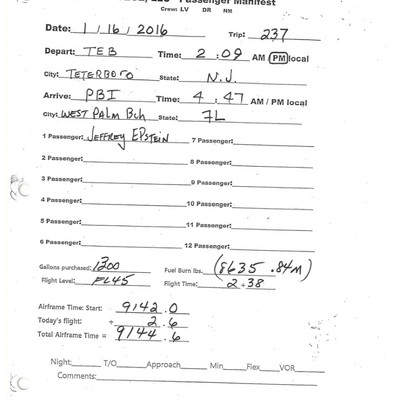 LLC Passenger Manifest
Crew: LV DR NM
Date: 1/16/2016 Trip: 237
Depart: TEB Time: 2:09 AM PM local
City: TETERBORO State: N.J.
Arrive: PBI Time: 4:47 AM / PM local
City: WEST PALM Bch State: FL
1 Passenger: JEFFREY EPSTEIN 7 Passenger:
2 Passenger: 8 Passenger:
3 Passenger: 9 Passenger:
4 Passenger: 10 Passenger:
5 Passenger: 11 Passenger:
6 Passenger: 12 Passenger:
Gallons purchased: 1300 Fuel Burn lbs. (8635 .84M)
Flight Level: FL45 Flight Time: 2+38
Airframe Time: Start: 9142.0
Today's flight: + 2.6
Total Airframe Time = 9144.6
Night: T/O Approach Min Flex VOR
Comments: